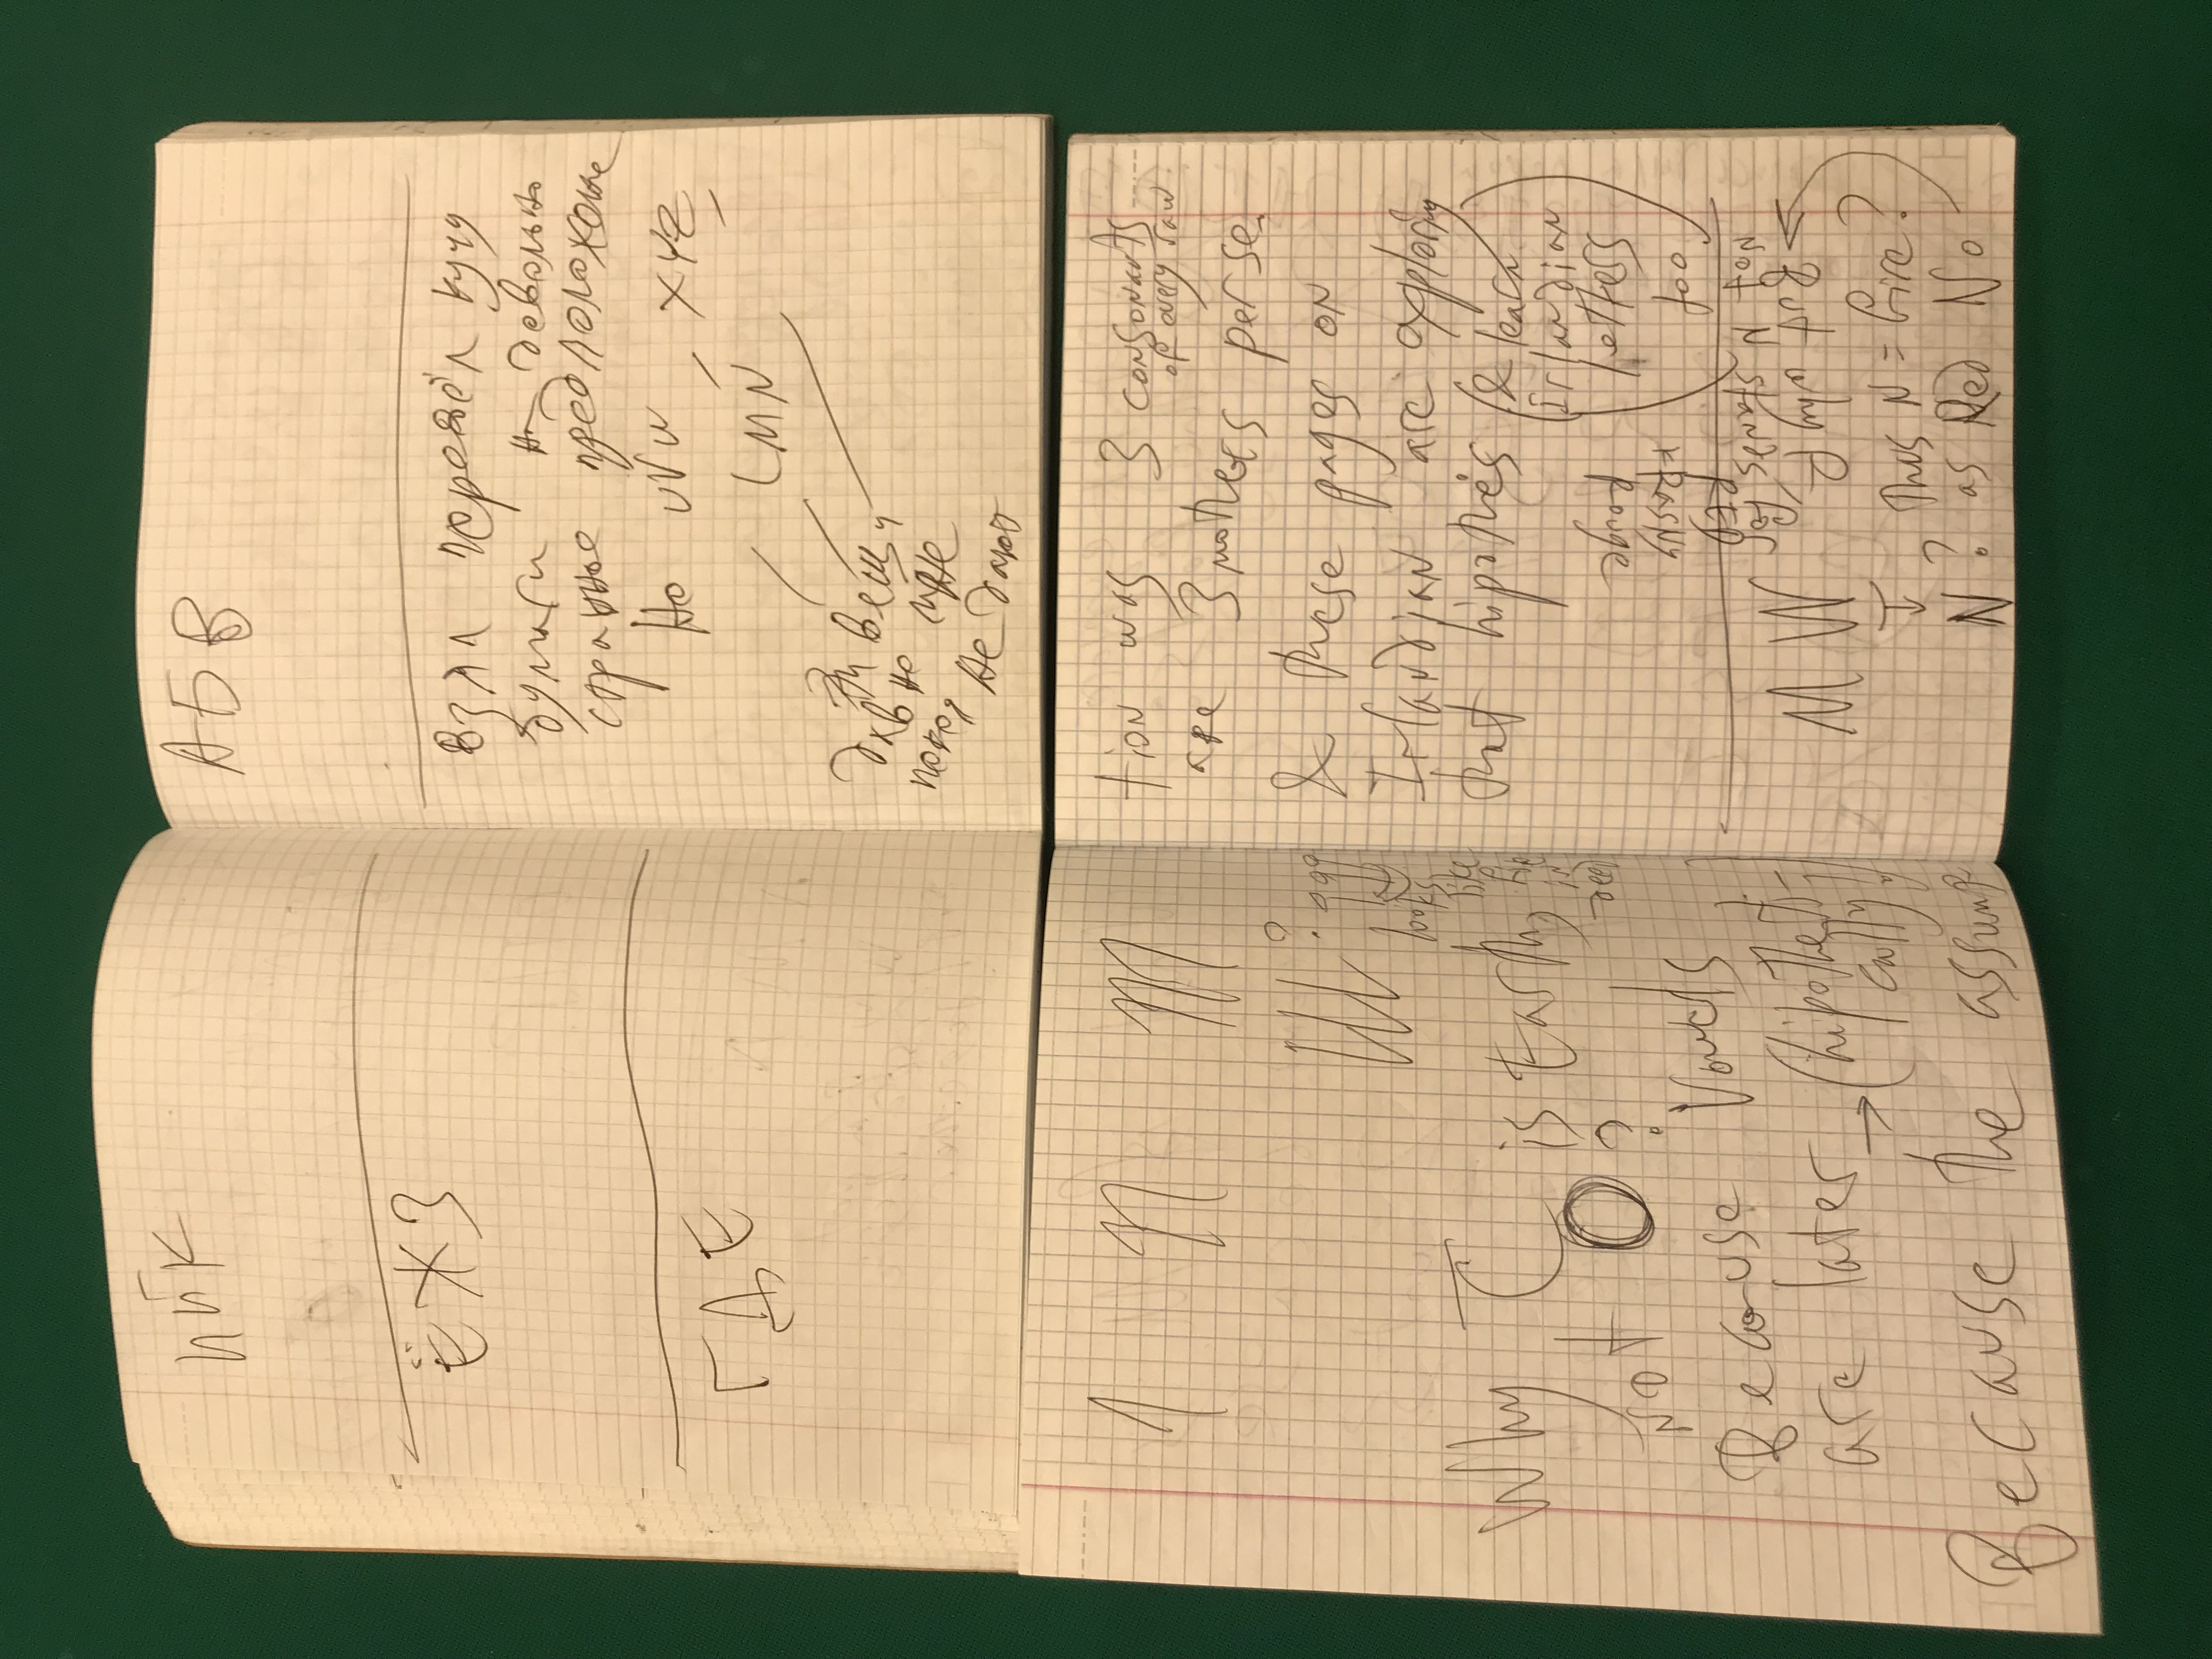 ИЙК
ЁЖЗ
ГДЕ
АБВ
Взял перевёл кучу
бумаги на довольно
странное предположение
Но UVW, XYZ,
LMN
Эти вещи
давно мне
покоя
не дают
1 n m
Ш?
looks
like
Why T is Earth,
not O ?
Because Vowels
are later → (hipotheti-
cally)
Because the assump
tion was 3 consonants
of every raw
are 3 mothers per se.
& these pages on
Irlandian are exploring
that hipothes (& learn
Irlandian
letters
too
Rouge
krasny
RED
not N stands for
But why R
M W
↓ Thus N = Fire?
N ? as Red No